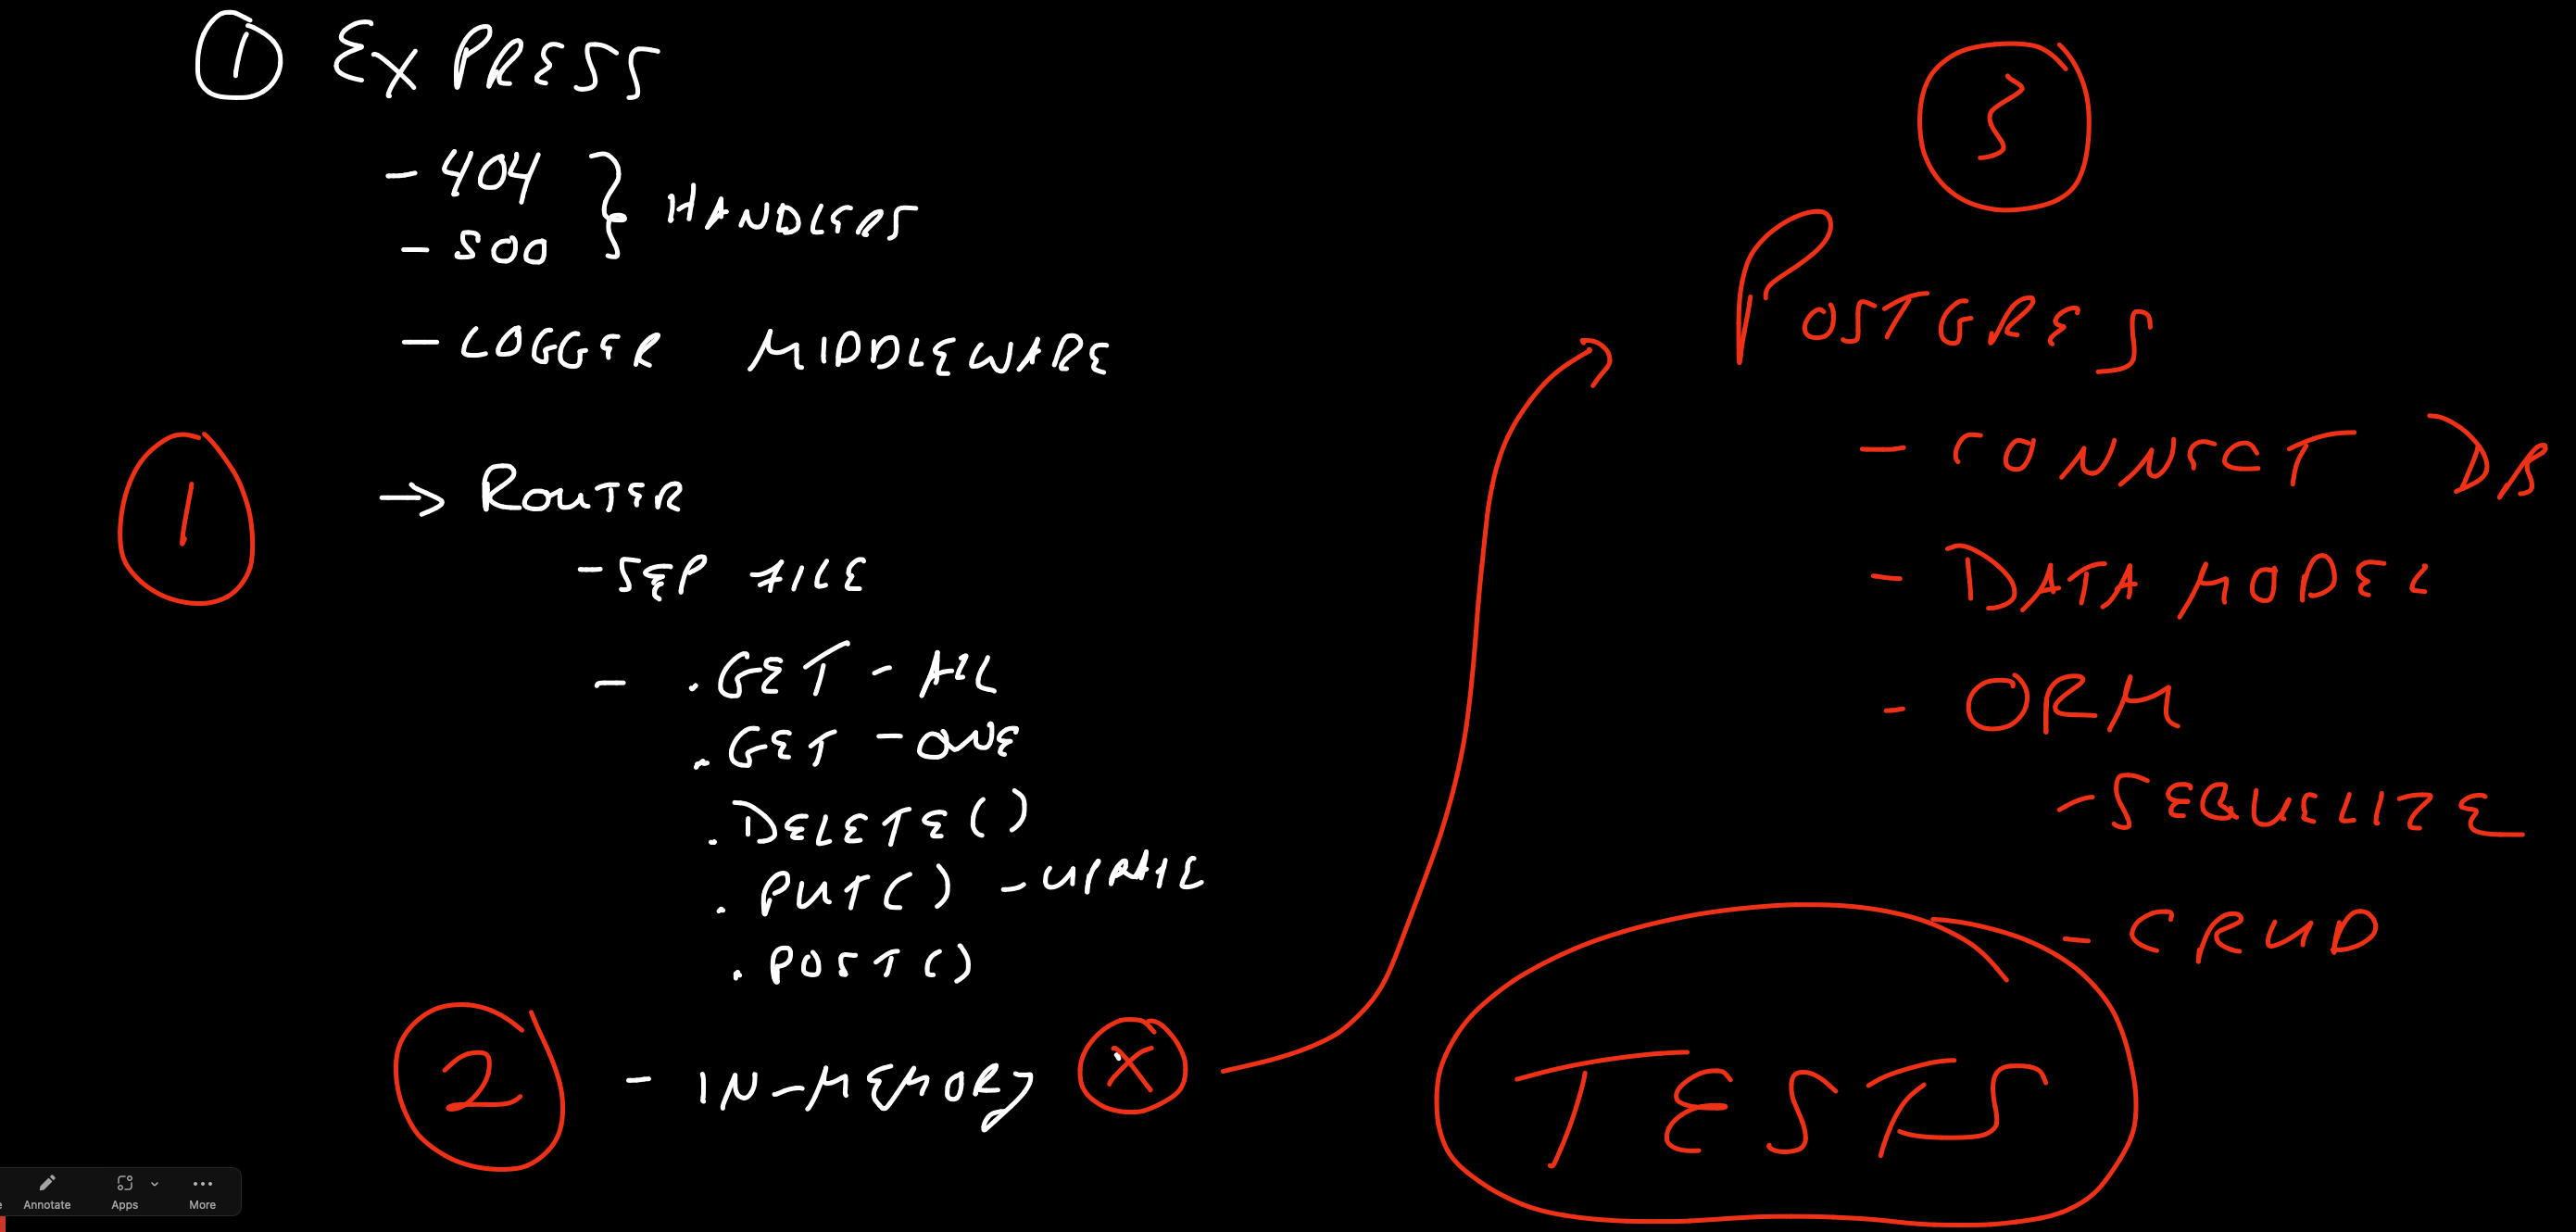 ① EXPRESS
- 404
- 500
} HANDLERS
- LOGGER MIDDLEWARE
1
→ ROUTER
- SEP FILE
- .GET - ALL
.GET - ONE
.DELETE()
.PUT() - UPDATE
.POST()
2
- IN-MEMORY X
3
POSTGRES
- CONNECT DB
- DATA MODEL
- ORM
- SEQUELIZE
- CRUD
TESTS
Annotate
Apps
More